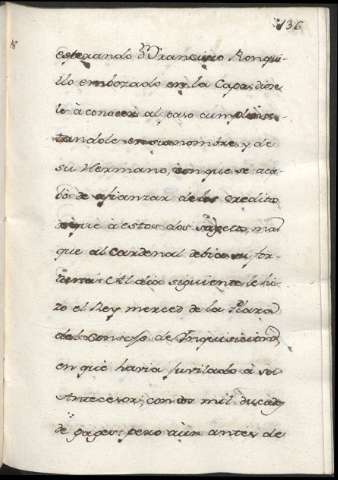 136
esterando Dn. Francisco Ronqui-
llo embozado en la Capa, diose
le à conocer al paso cumplimen-
tandole en su nombre, y de
su Hermano, con que se aca-
bò de afianzar de los credito
à estos dos sugetos, mas
que al Cardenal debio su for-
tuna. Al dia siguiente le hi-
zo el Rey merced de la Plaza
del Consejo de Inquisicion,
en que havia juvilado à su
Antecesor, con dos mil ducados
de gages; pero aun antes de